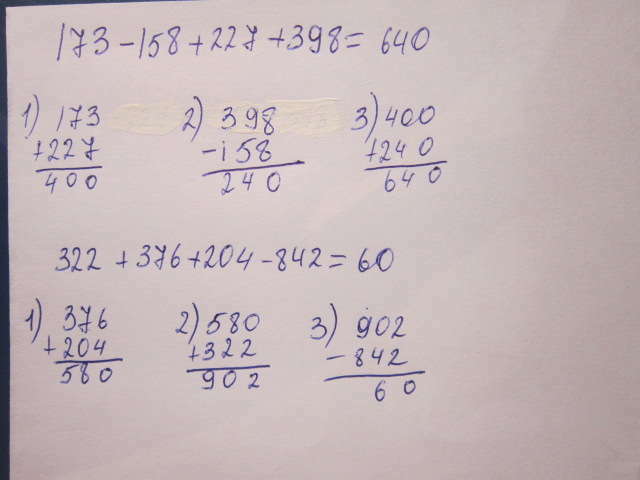 173 - 158 + 227 + 398 = 640
1) 173 2) 398 3) 400
+227 -158 +240
400 240 640
322 + 376 + 204 - 842 = 60
1) 376 2) 580 3) 902
+204 +322 -842
580 902 60